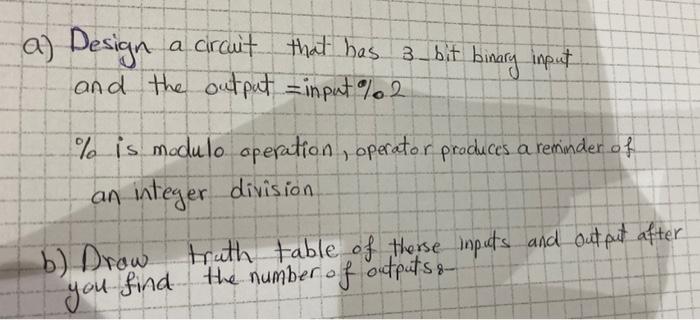 a) Design a circuit that has 3-bit binary input
and the output = input % 2
% is modulo operation, operator produces a reminder of
an integer division
b) Draw truth table of therse inputs and output after
you find the number of outputs :-